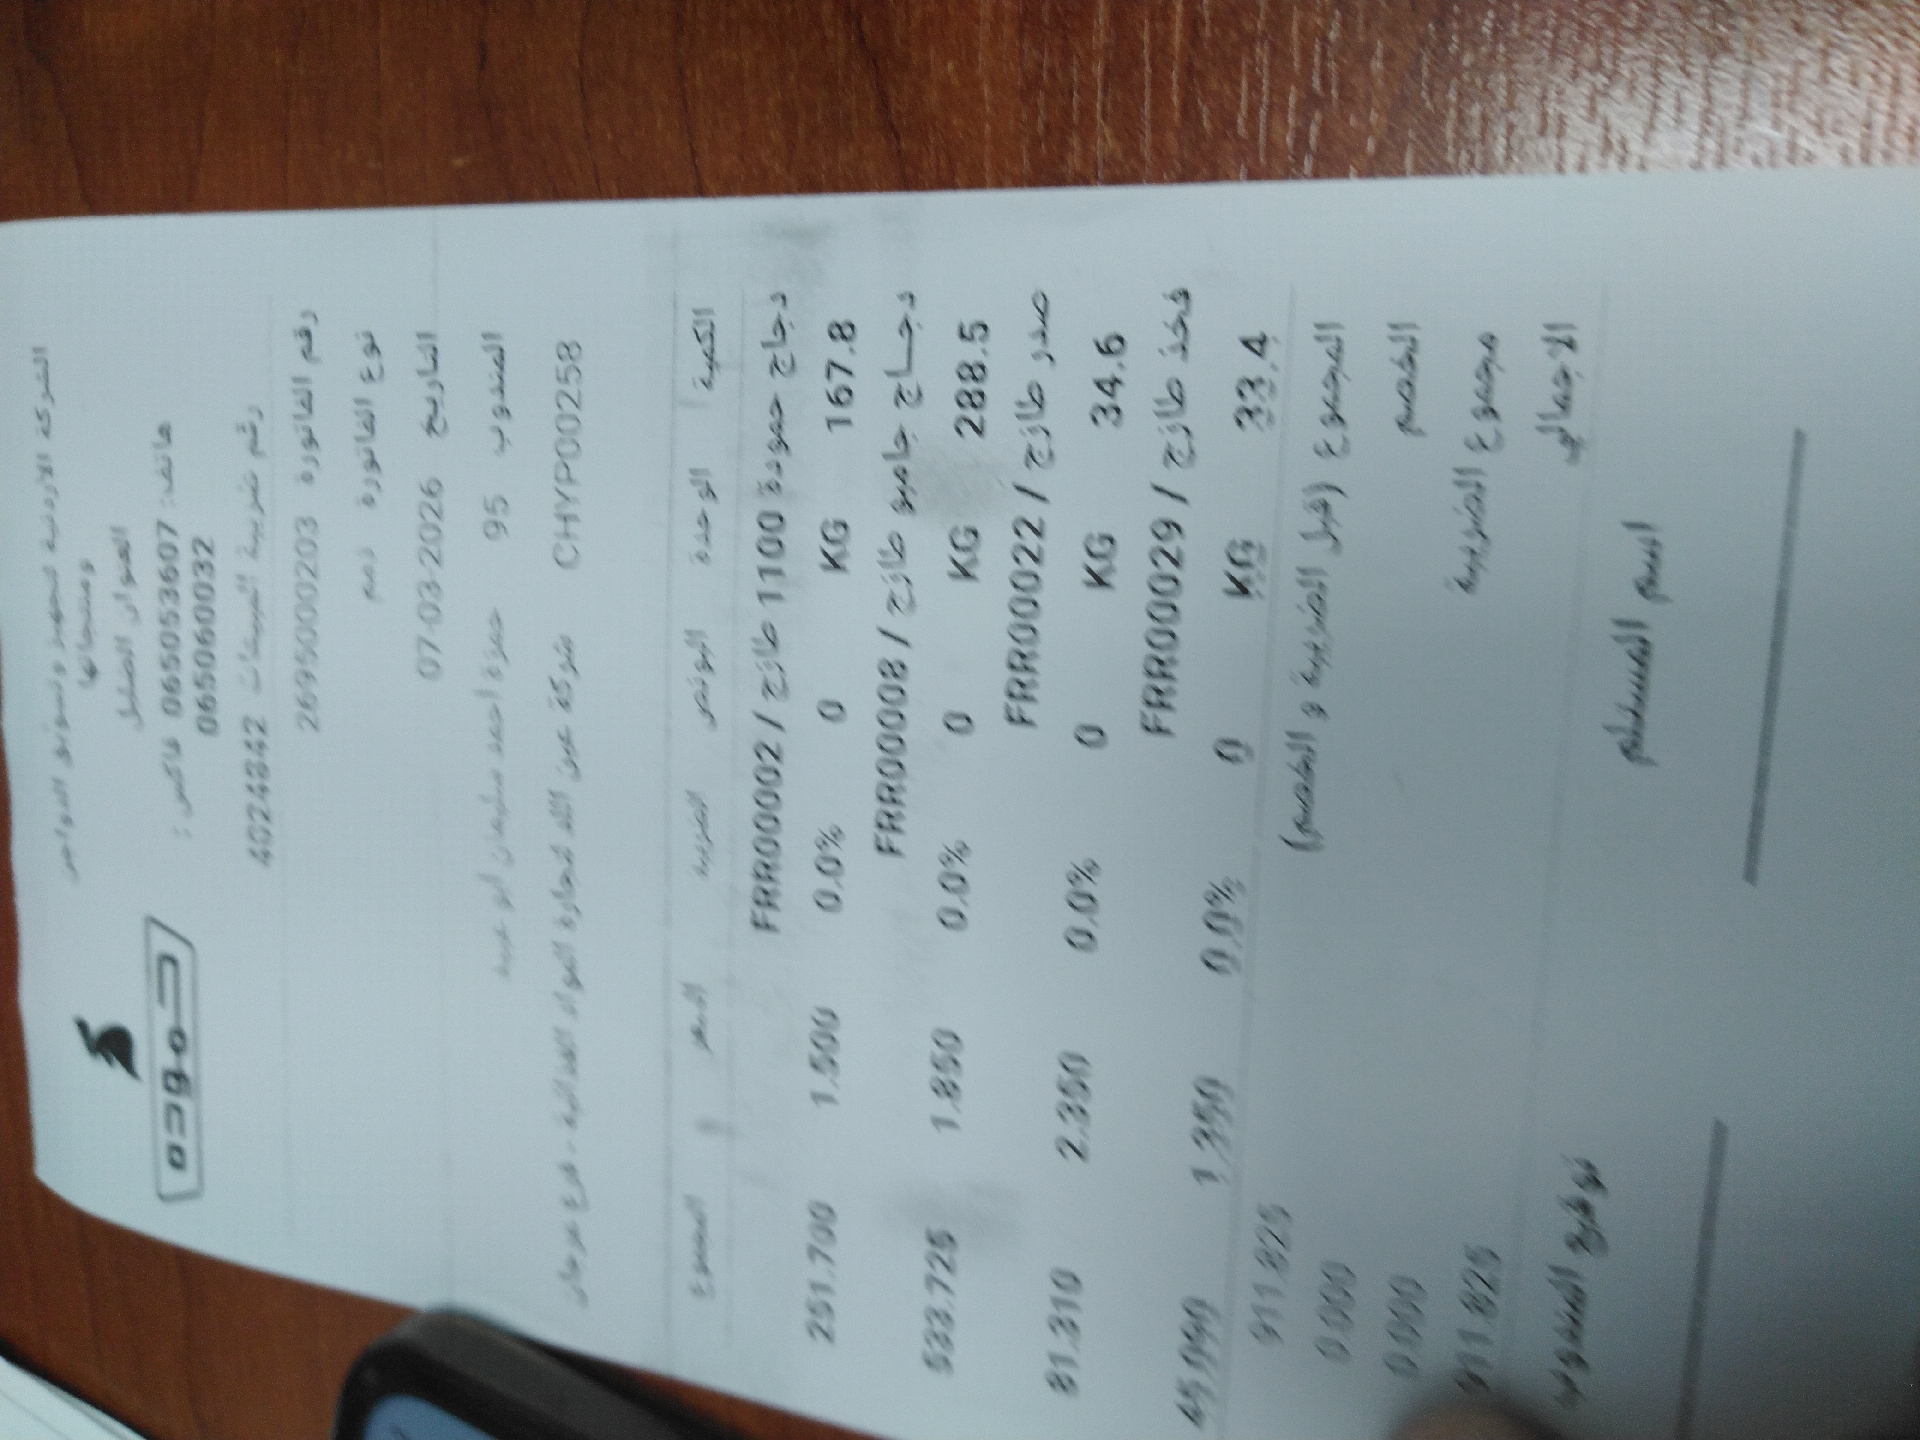 الشركة الاردنية لتجهيز وتسويق الدواجن
ومنتجاتها
حموده
العنوان الضليل
هاتف: 065053607 فاكس :
065060032
رقم ضريبة المبيعات 4024842
رقم الفاتورة 2695000203
نوع الفاتورة ذمم
التاريخ 07-03-2026
المندوب 95 حمزة احمد سليمان ابو
CHYP00258 شركة عين الله لتجارة المواد الغذائية - فرع مرجان
الكمية الوحدة البونص الضريبة السعر المجموع
دجاج حمودة 1100 طازج / FRR00002
167.8 KG 0 0.0% 1.500 251.700
دجاج جامبو طازج / FRR00008
288.5 KG 0 0.0% 1.850 533.725
صدر طازج / FRR00022
34.6 KG 0 0.0% 2.350 81.310
فخذ طازج / FRR00029
33.4 KG 0 0.0% 1.350 45.090
المجموع (قبل الضريبة و الخصم) 911.825
الخصم 0.000
مجموع الضريبة 0.000
الاجمالي 911.825
اسم المستلم توقيع المندوب